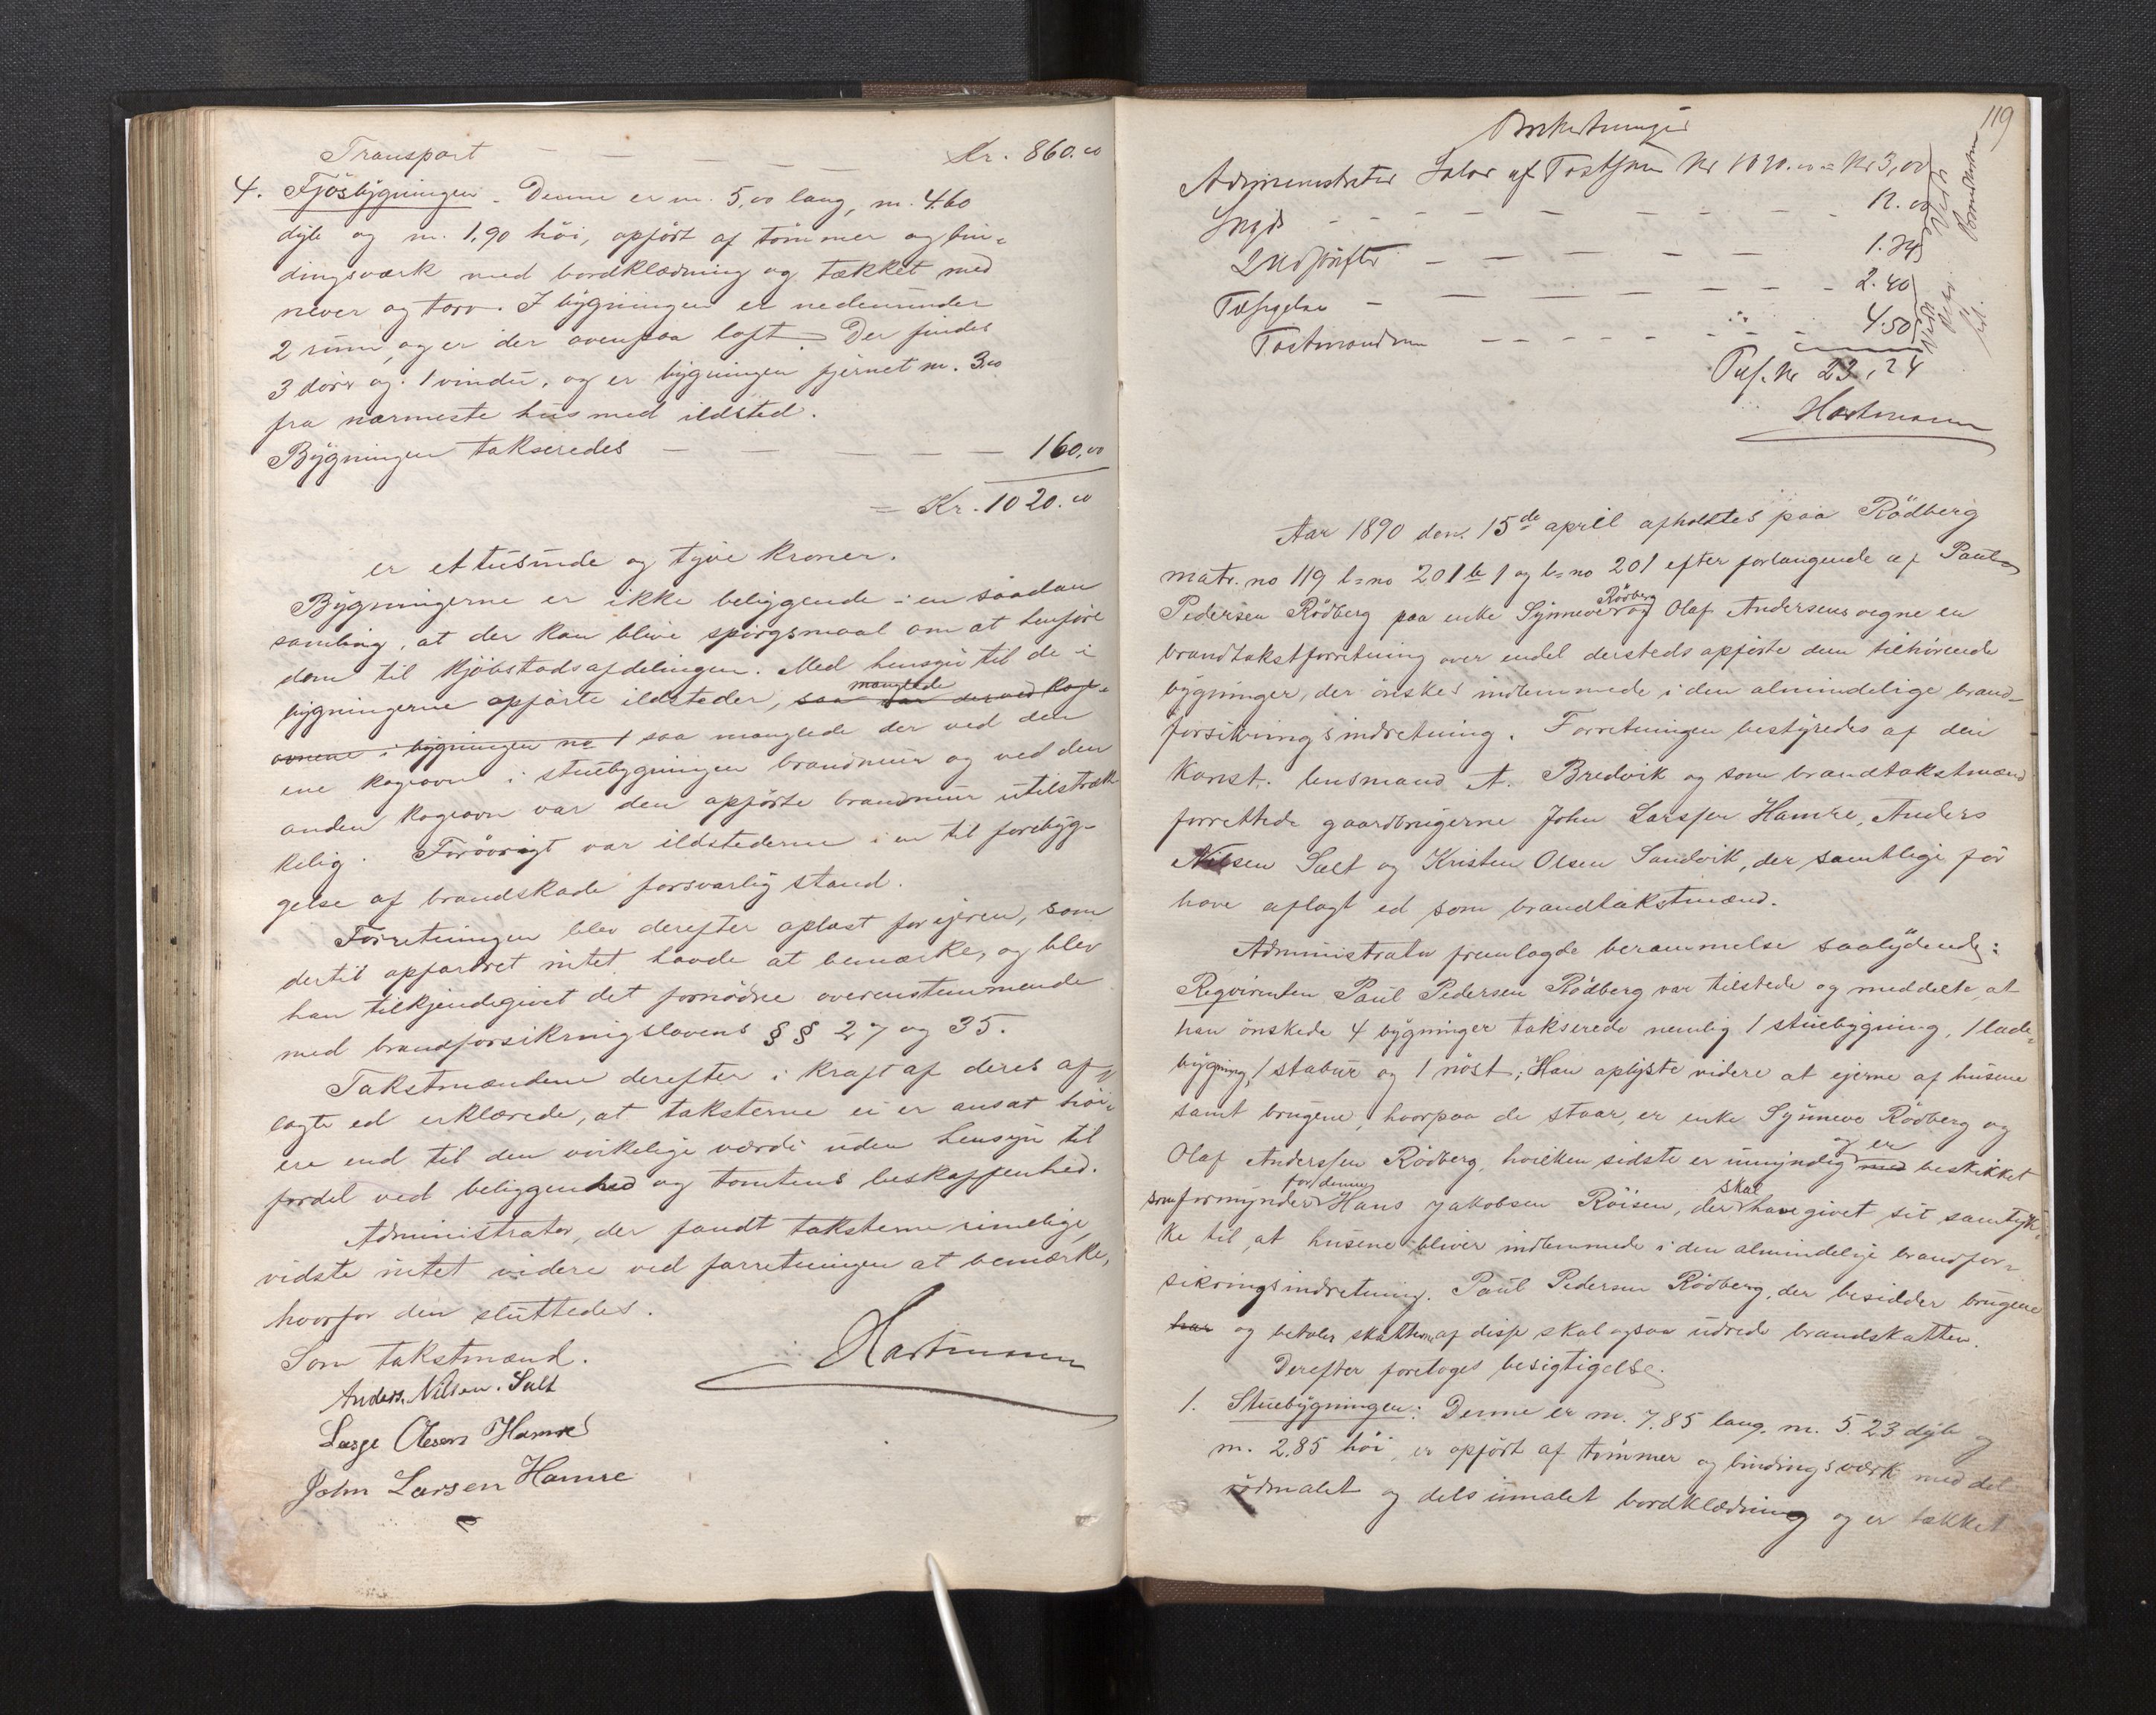 Transport — — — — Kr. 860.00
4. Fjösbygningen. Denne er m. 5,00 lang, m. 4.60
dyb og m. 1,90 höi, opfört af tömmer og bin-
dingsværk med bordklædning og tækket med
never og torv. I bygningen er nedenunder
2 rum, og er der ovenpaa loft — Der findes
3 dörer og 1 vindu, og er bygningen fjernet m. 3.00
fra nærmeste hus med ildsted.
Bygningen takseredes — — — — — 160.00
= Kr. 1020.00
er et tusinde og tyve kroner.
Bygningerne er ikke beliggende i en saadan
samling, at der kan blive spörgsmaal om at henföre
dem til kjöbstadsafdelingen. Med hensyn til de i
bygningerne opförte ildsteder, saa manglede var der ved koge-
ovnene i bygningen no 1 saa manglede der ved den
ene kogeovn i stuebygningen brandmur og ved den
anden kogeovn var den opförte brandmur utilstræk-
kelig. Forövrigt var ildstederne i en til forebyg-
gelse af brandskade forsvarlig stand.
Forretningen blev derefter oplæst for ejeren, som
dertil opfordret intet havde at bemærke, og blev
han tilkjendegivet det fornödne overenstemmende
med brandforsikringslovens §§ 27 og 35.
Takstmændene derefter i kraft af deres af-
lagte ed erklærede, at taksterne ei er ansat höi-
ere end til den virkelige værdi uden hensyn til
fordel ved beliggenhed og tomtens beskaffenhed.
Administrator, der fandt taksterne rimelige,
vidste intet videre ved forretningen at bemærke,
hvorfor den sluttedes.
Som takstmænd. Hartmann
Anders Nilsen Sælt
Lasse Olesen Hamre
John Larsen Hamre
119
Administrator Salær af Takstsum Kr 1020.00 = Kr 3,00
Skyds — — — — — 12.00
2 Udskrifter — — — — — 1.34
— — — — — 2.40
Takstmændene — — — — — 4.50
Kr 23,24
Hartmann
Aar 1890 den 15de april afholdtes paa Rödberg
matr. no 119 l=no 201 b 1 og l=no 201 efter forlangende af Paul
Pedersen Rödberg paa enke Synneve Rödberg og Olaf Andersens vegne en
brandtakstforretning over endel dersteds opförte dem tilhörende
bygninger, der önskes indlemmede i den almindelige brand-
forsikringsindretning. Forretningen bestyredes af den
konst. lensmand A. Bredvik og som brandtakstmænd
forrettede gaardbrugerne John Larssen Hamre, Anders
Nilsen Sælt og Kristen Olsen Sandvik, der samtlige för
have aflagt ed som brandtakstmænd.
Administrator fremlagde berammelse saalydende:
Reqvirenten Paul Pedersen Rödberg var tilstede og meddelte, at
han önskede 4 bygninger takserede nemlig 1 stuebygning, 1 lade-
bygning, 1 stabur og 1 nöst; Han oplyste videre at ejerne af husene
samt brugene, hvorpaa de staar, er enke Synneve Rödberg og
Olaf Anderssen Rödberg, hvilken sidste er umyndig og er med beskikket
som formynder for denne Hans Jakobsen Röisen, der skal have givet sit samtyk-
ke til, at husene bliver indlemmede i den almindelige brandfor-
sikringsindretning. Paul Pedersen Rödberg, der besidder brugene
har og betaler skatterne af disse skal ogsaa udrede brandskatten.
Derefter foretoges besigtigelse.
1. Stuebygningen: Denne er m. 7,85 lang, m. 5.23 dyb og
m. 2,85 höi, er opfört af tömmer og bindingsværk med del
rödmalet og dels umalet bordklædning og er tækket